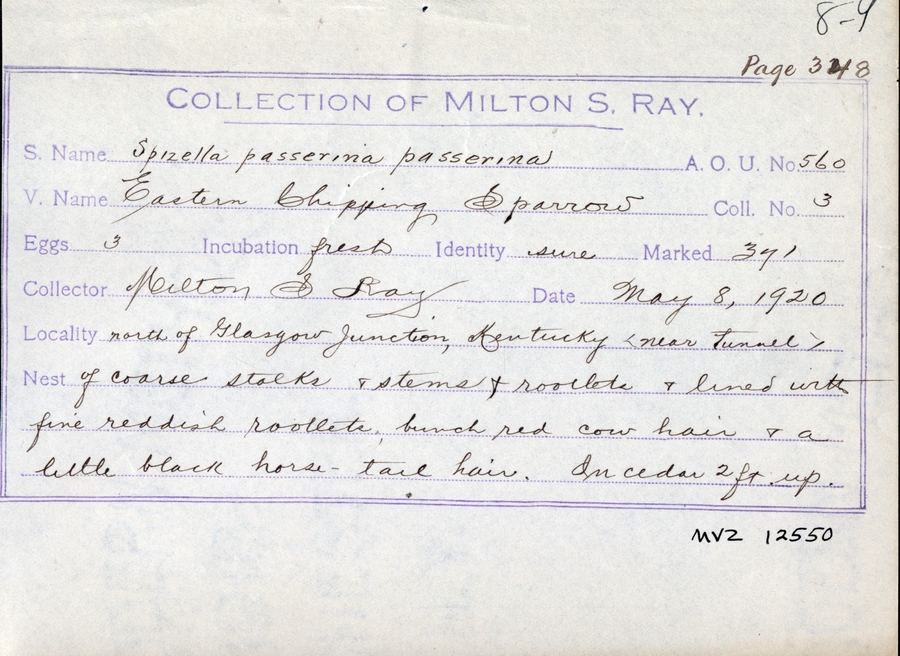 8-4
Page 348
COLLECTION OF MILTON S. RAY.
S. Name Spizella passerina passerina A. O. U. No. 560
V. Name Eastern Chipping Sparrow Coll. No. 3
Eggs 3 Incubation fresh Identity sure Marked 371
Collector Milton S Ray Date May 8, 1920
Locality north of Glasgow Junction, Kentucky <near Tunnel>
Nest of coarse stalks & stems & rootlets & lined with
fine reddish rootlets, bunch red cow hair & a
little black horse-tail hair. In cedar 2 ft. up.
MVZ 12550